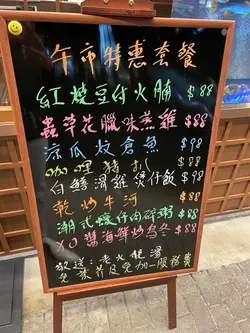 午市特惠套餐
紅燒豆仔火腩 $88
蟲草花臘味蒸雞 $88
涼瓜炆倉魚 $98
咖哩豬扒 $88
白鱔滑雞煲仔飯 $98
乾炒牛河 $88
潮式蠔仔肉碎粥 $88
XO醬海鮮炒烏冬 $88
放送：老火靚湯
免茶芥及免加一服務費